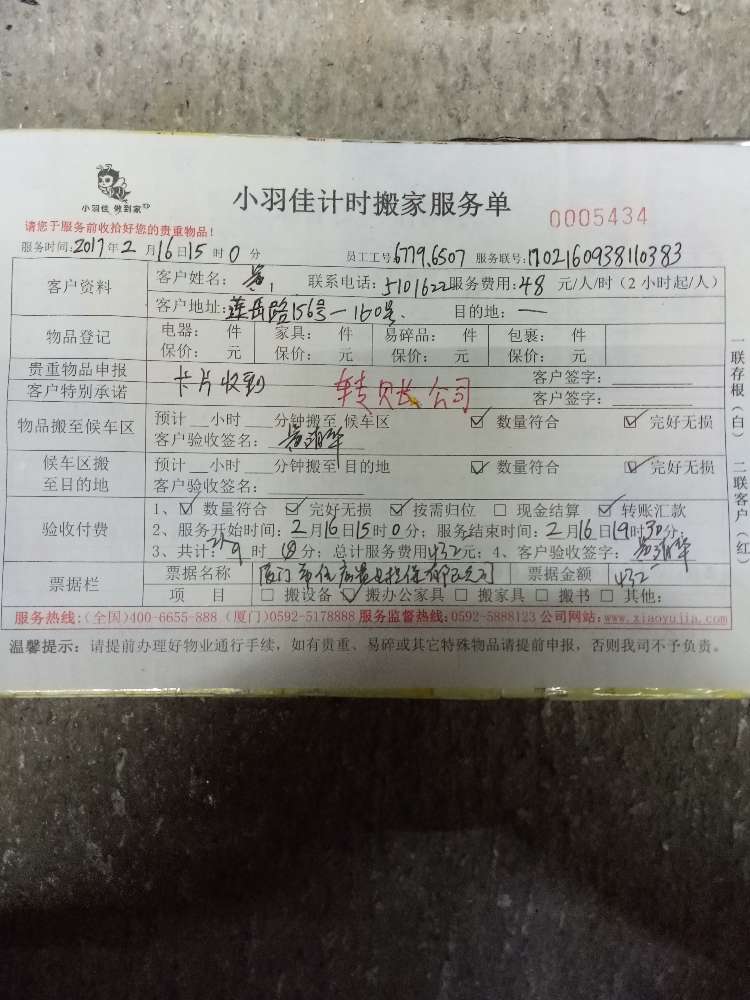 小羽佳 做到家
小羽佳计时搬家服务单
0005434
请您于服务前收拾好您的贵重物品！
服务时间：2017年2月16日15时0分 员工工号6779.6507 服务联号：170216093811038​3
客户资料 客户姓名：黄 联系电话：5101622 服务费用：48 元/人/时（2小时起/人）
客户地址：莲岳路156号-160号 目的地：一
物品登记 电器： 件 家具： 件 易碎品： 件 包裹： 件
保价： 元 保价： 元 保价： 元 保价： 元
贵重物品申报 卡片收到 转账公司 客户签字：
客户特别承诺 客户签字：
物品搬至候车区 预计__小时__分钟搬至 候车区 ☑ 数量符合 ☑ 完好无损
客户验收签名：
候车区搬至目的地 预计__小时__分钟搬至 目的地 ☑ 数量符合 ☑ 完好无损
客户验收签名：
验收付费 1、☑ 数量符合 ☑ 完好无损 ☑ 按需归位 □ 现金结算 ☑ 转账汇款
2、服务开始时间：2月16日15时0分；服务结束时间：2月16日19时30分；
3、共计：9时 分；总计服务费用432元；4、客户验收签字：
票据栏 票据名称 厦门市住房置业担保有限公司 票据金额 432
项 目 □ 搬设备 ☑ 搬办公家具 □ 搬家具 □ 搬书 □ 其他：
服务热线：(全国)400-6655-888（厦门)0592-5178888 服务监督热线：0592-5888123 公司网站：www.xiaoyujia.com
温馨提示：请提前办理好物业通行手续，如有贵重、易碎或其它特殊物品请提前申报，否则我司不予负责。
一联存根（白） 二联客户（红）